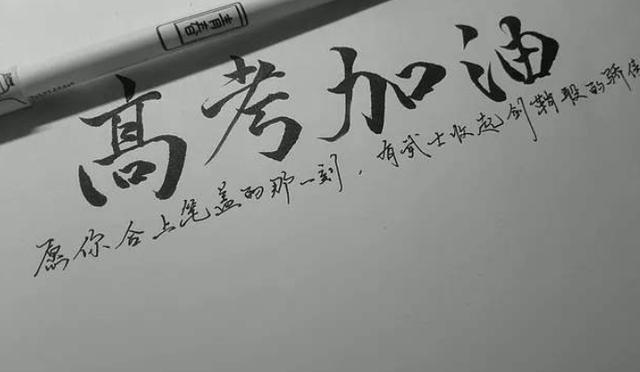 青春
高考加油
愿你合上笔盖的那一刻，有武士收起剑鞘般的骄傲